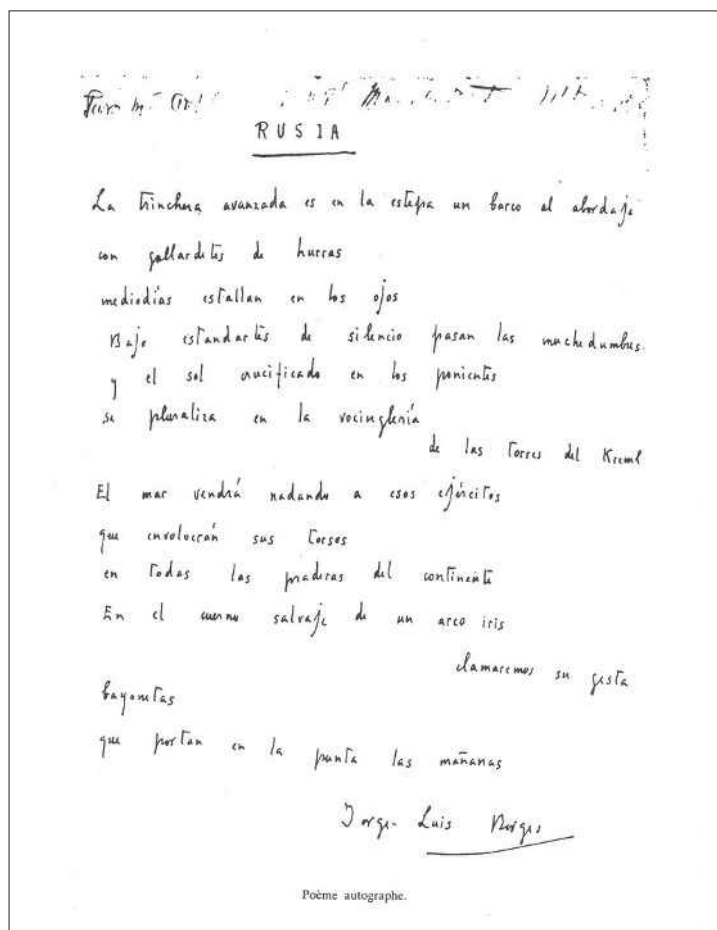 RUSIA
La trinchera avanzada es en la estepa un barco al abordaje
con gallardetes de hurras
mediodías estallan en los ojos
Bajo estandartes de silencio pasan las muchedumbres
y el sol crucificado en los ponientes
se pluraliza en la vocinglería
de las torres del Kreml
El mar vendrá nadando a esos ejércitos
que envolverán sus torsos
en todas las praderas del continente
En el cuerno salvaje de un arco iris
clamaremos su gesta
bayonetas
que portan en la punta las mañanas
Jorge-Luis Borges
Poème autographe.